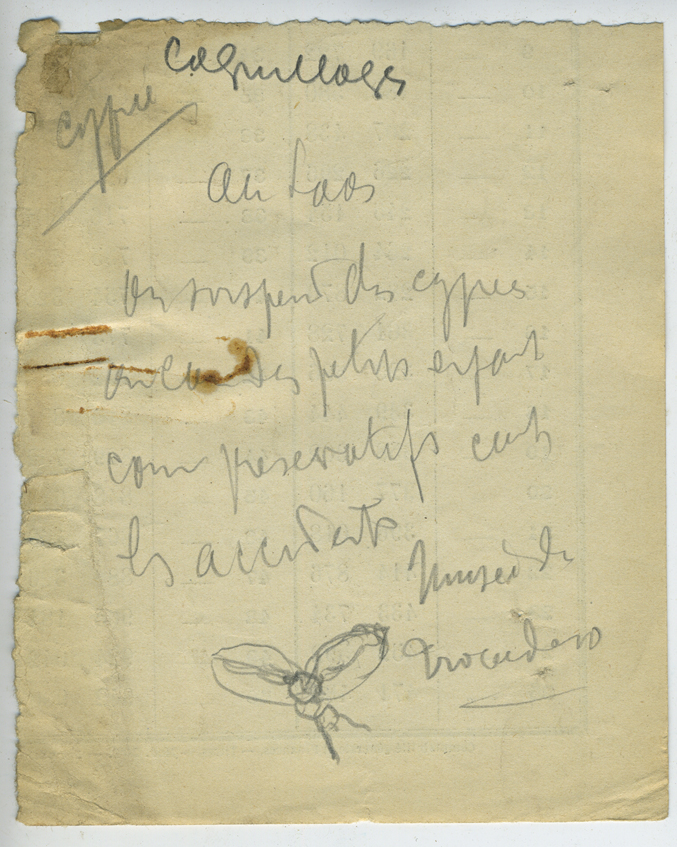 Coquillages
cyprée
Au Laos
On suspend des cyprées
au cou des petits enfants
comme préservatifs contre
les accidents
Musée du
Trocadero